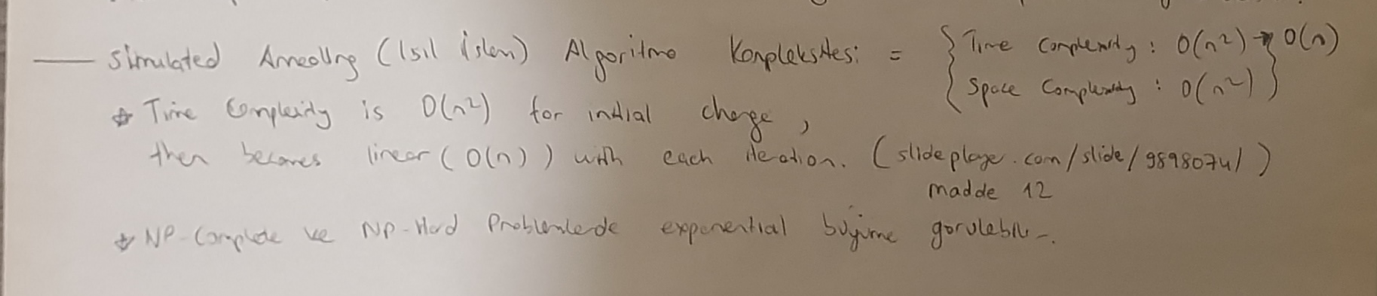 Simulated Annealing (Isıl İşlem) Algoritma Kompleksitesi = { Time Complexity : O(n²) → O(n)
Space Complexity : O(n²) }
* Time Complexity is O(n²) for initial charge,
then becomes linear (O(n)) with each iteration. (slideplayer.com/slide/9898074/)
madde 12
* NP-Complete ve NP-Hard Problemlerde exponential büyüme görülebilir.